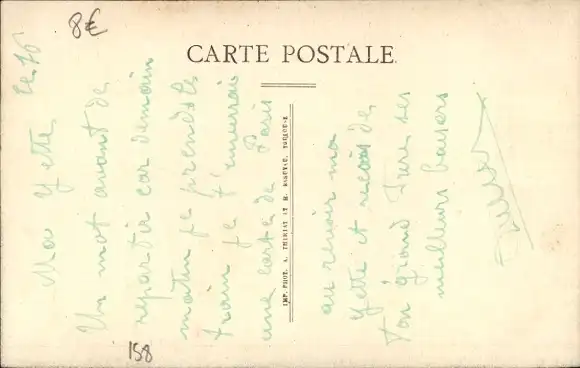 8€
CARTE POSTALE
Le 26
Ma Yette
Un mot avant de
repartir car demain
matin je prends le
train je t'enverrai
une carte de Paris
au revoir ma
Yette et reçois de
ton grand ses
meilleurs baisers
IMP. PHOT. A. THIRIAT ET H. BASUYAU, TOULOUSE
158